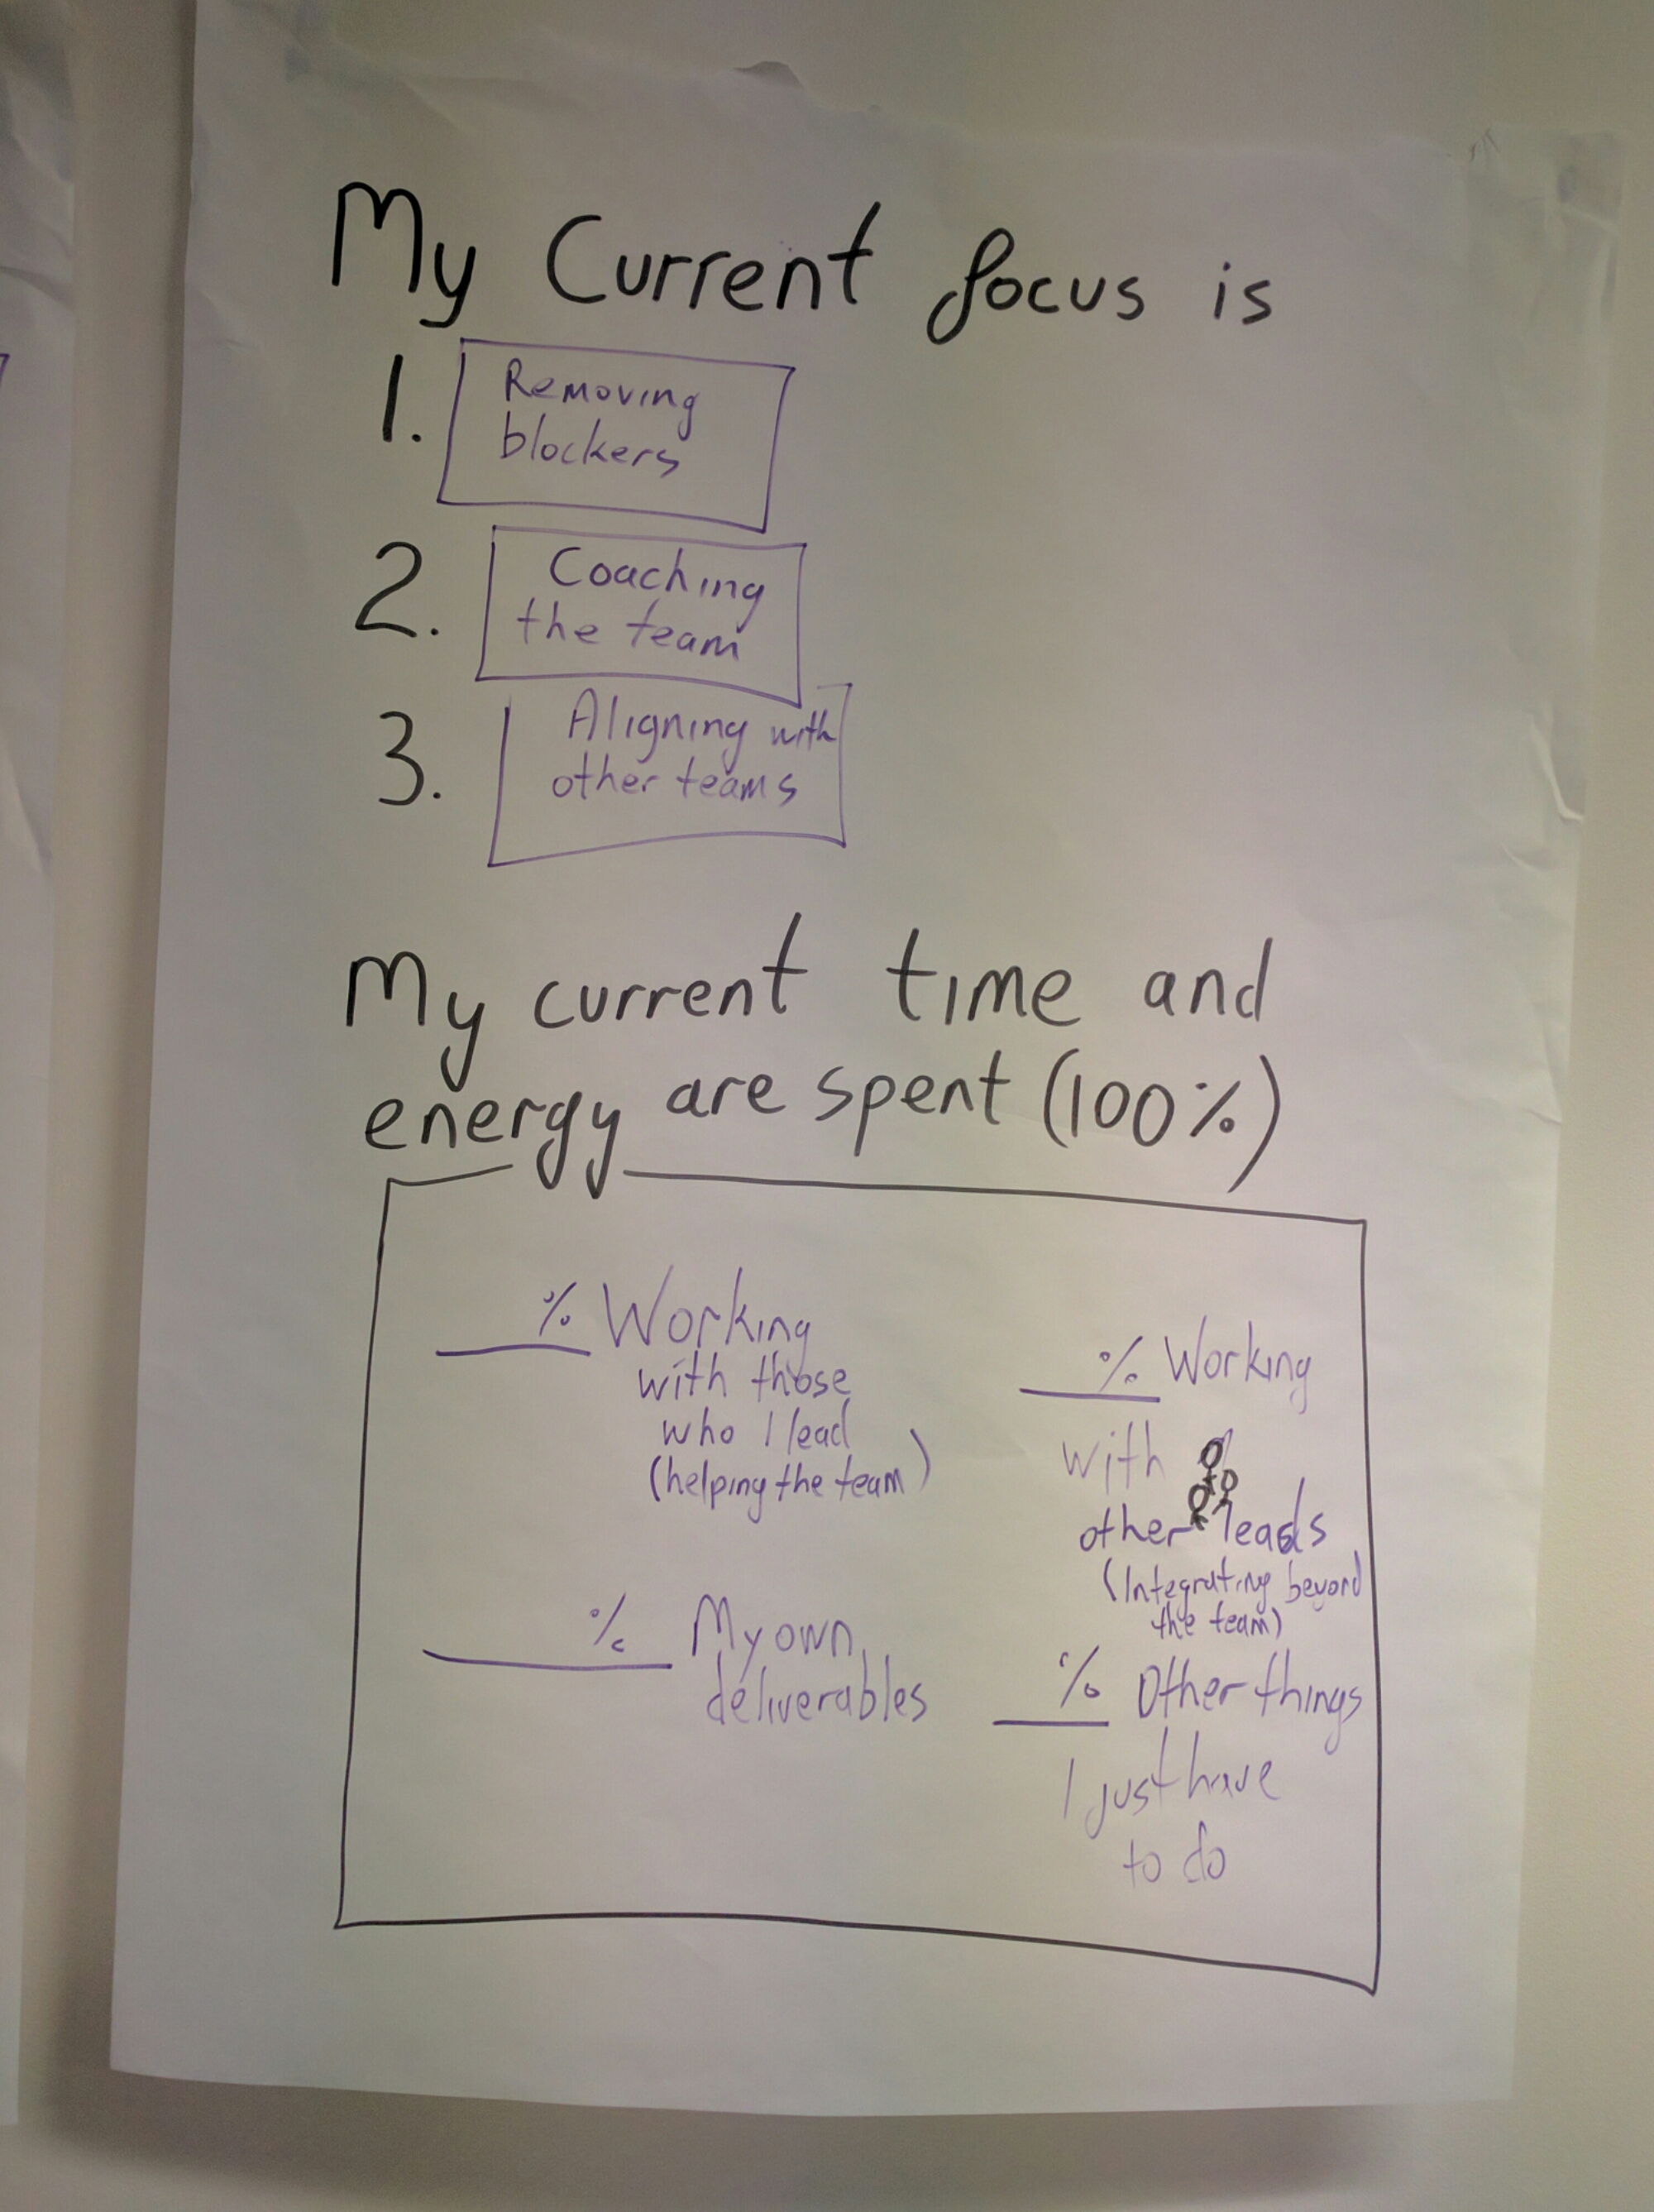 My Current focus is
1. Removing
blockers
2. Coaching
the team
3. Aligning with
other teams
My current time and
energy are spent (100%)
% Working
with those
who I lead
(helping the team)
% Working
with
other leads
(Integrating beyond
the team)
% My own
deliverables
% Other things
I just have
to do